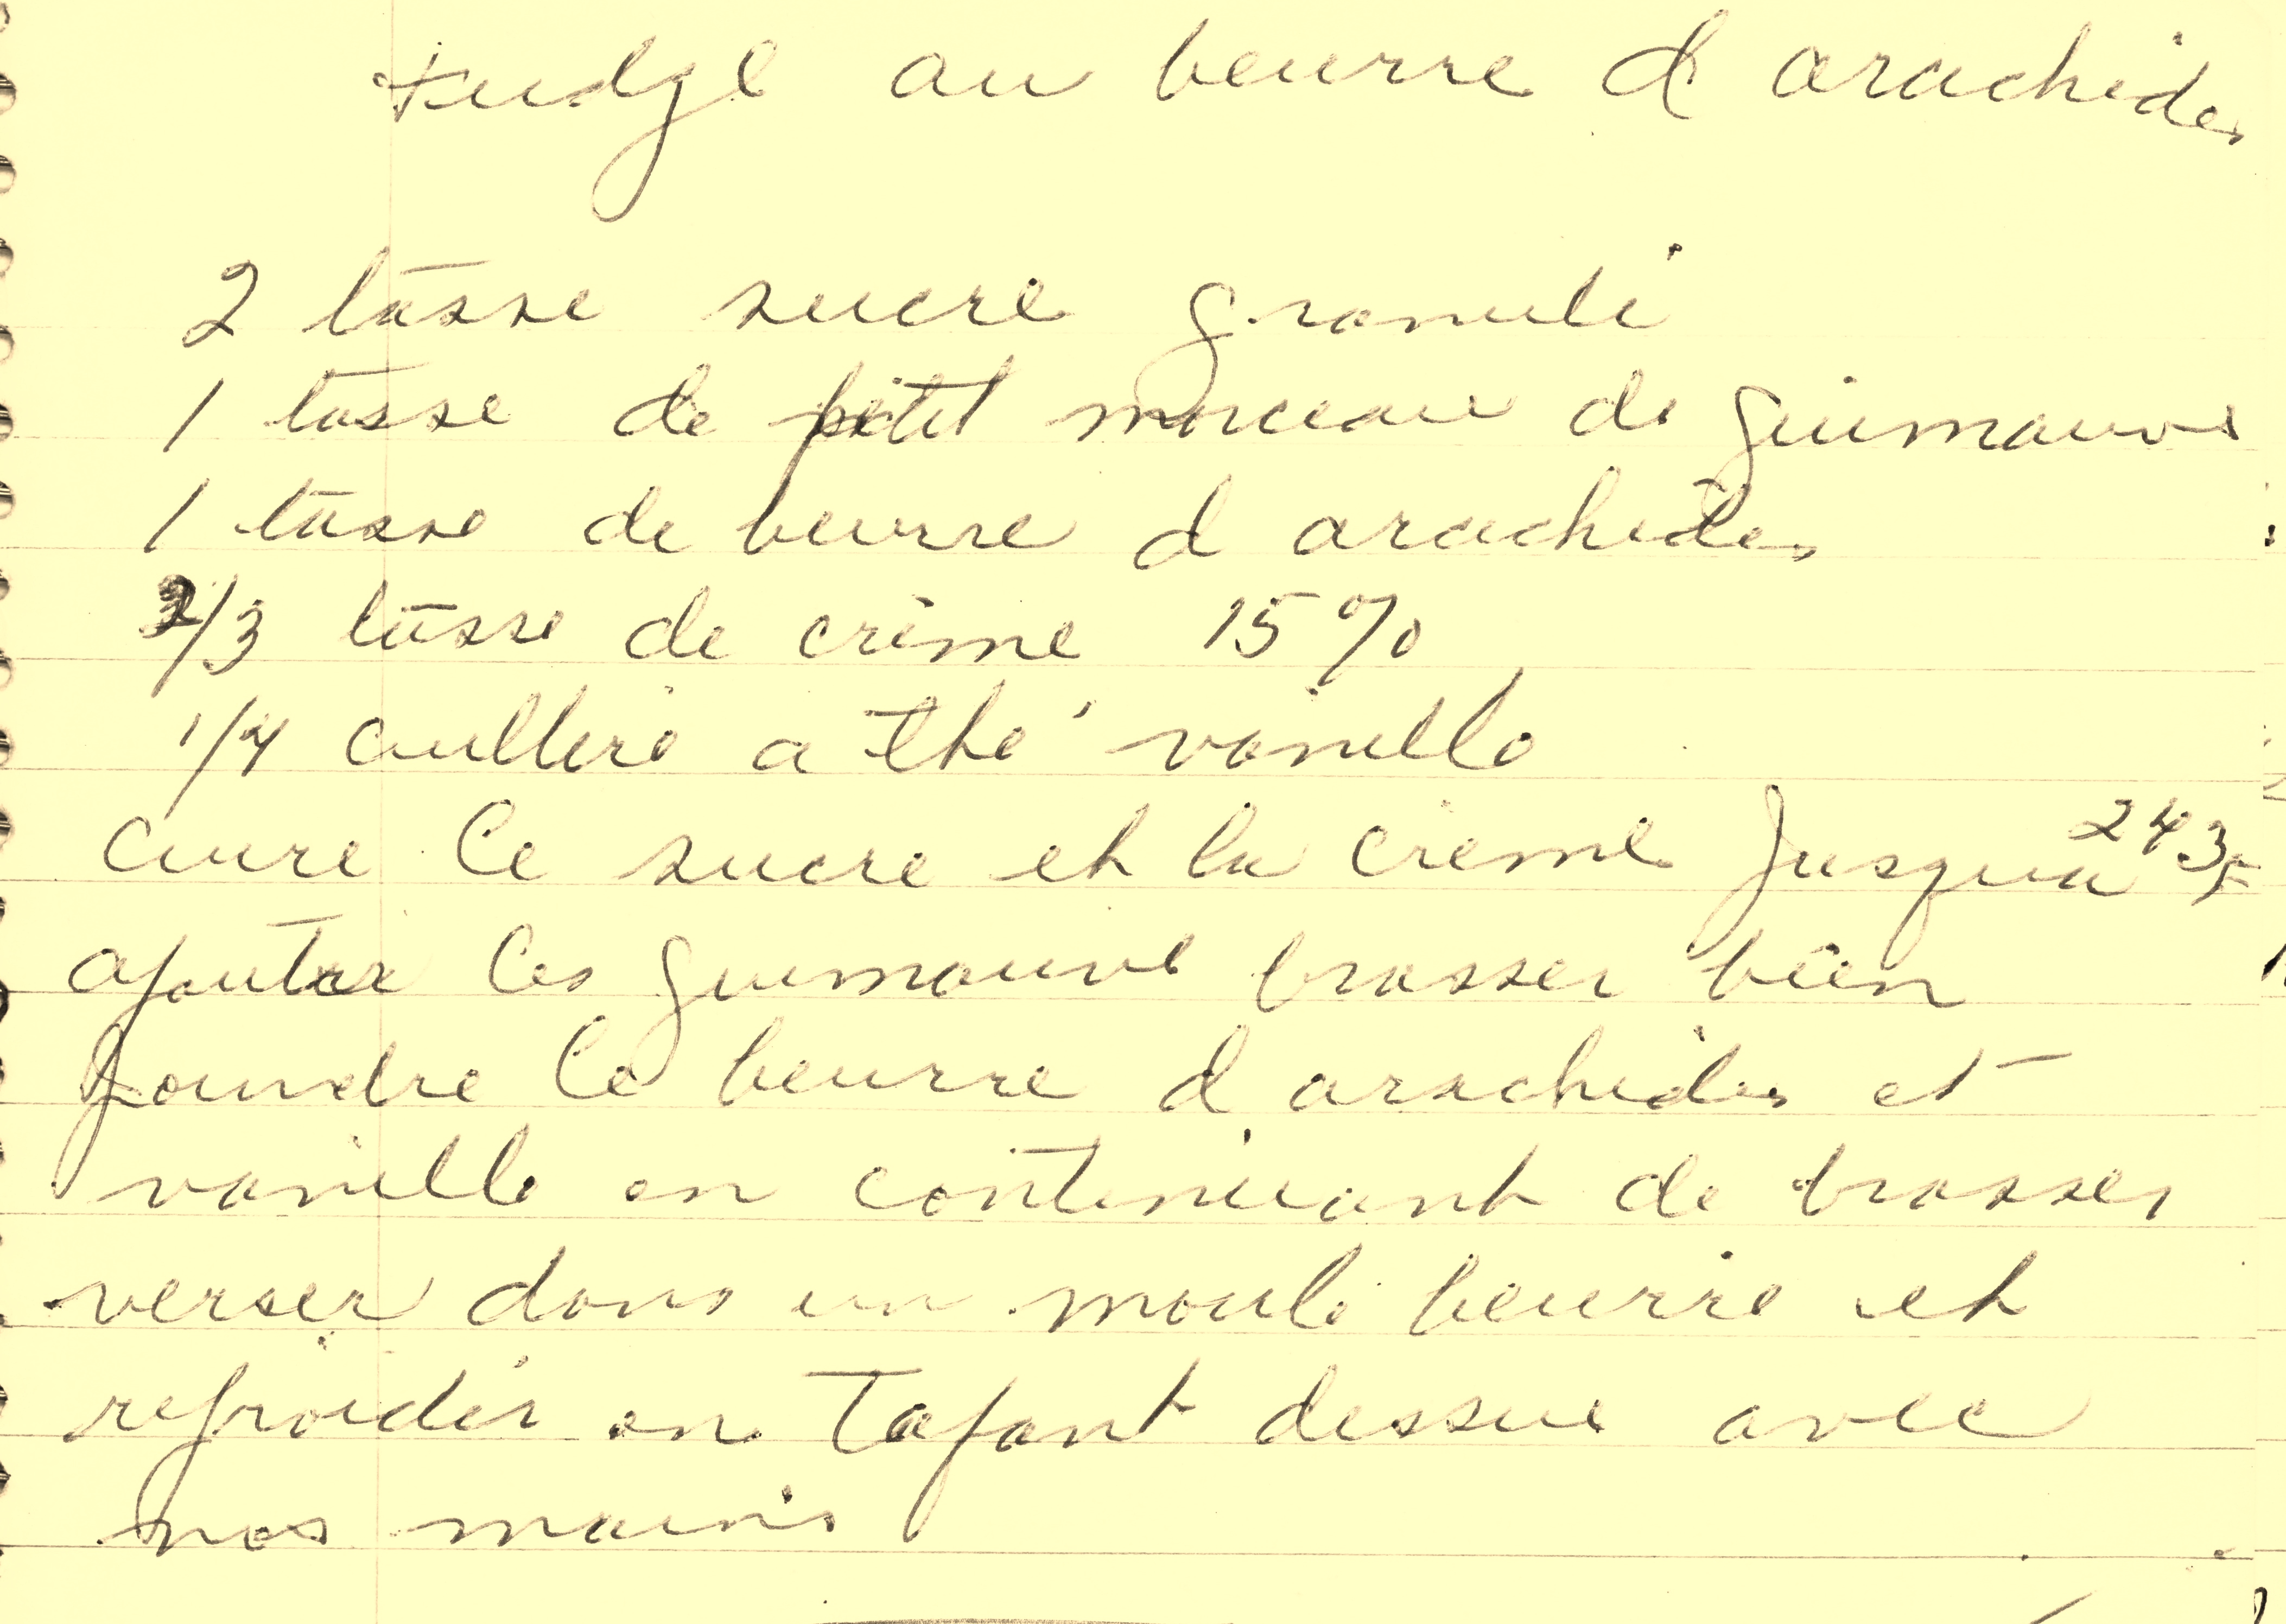 Fudge au beurre d arachides
2 tasse sucre granulé
1 tasse de petit morceau de guimauve
1 tasse de beurre d arachides
2/3 tasse de crème 15%
1/4 cuillere a thé vanille
cuire le sucre et la creme jusqua 243F
ajouter les guimauve brasser bien
foundre le beurre d arachides et
vanille en contenuant de brasser
verser dans un moule beurré et
refroidir en tapant dessue avec
nos mains